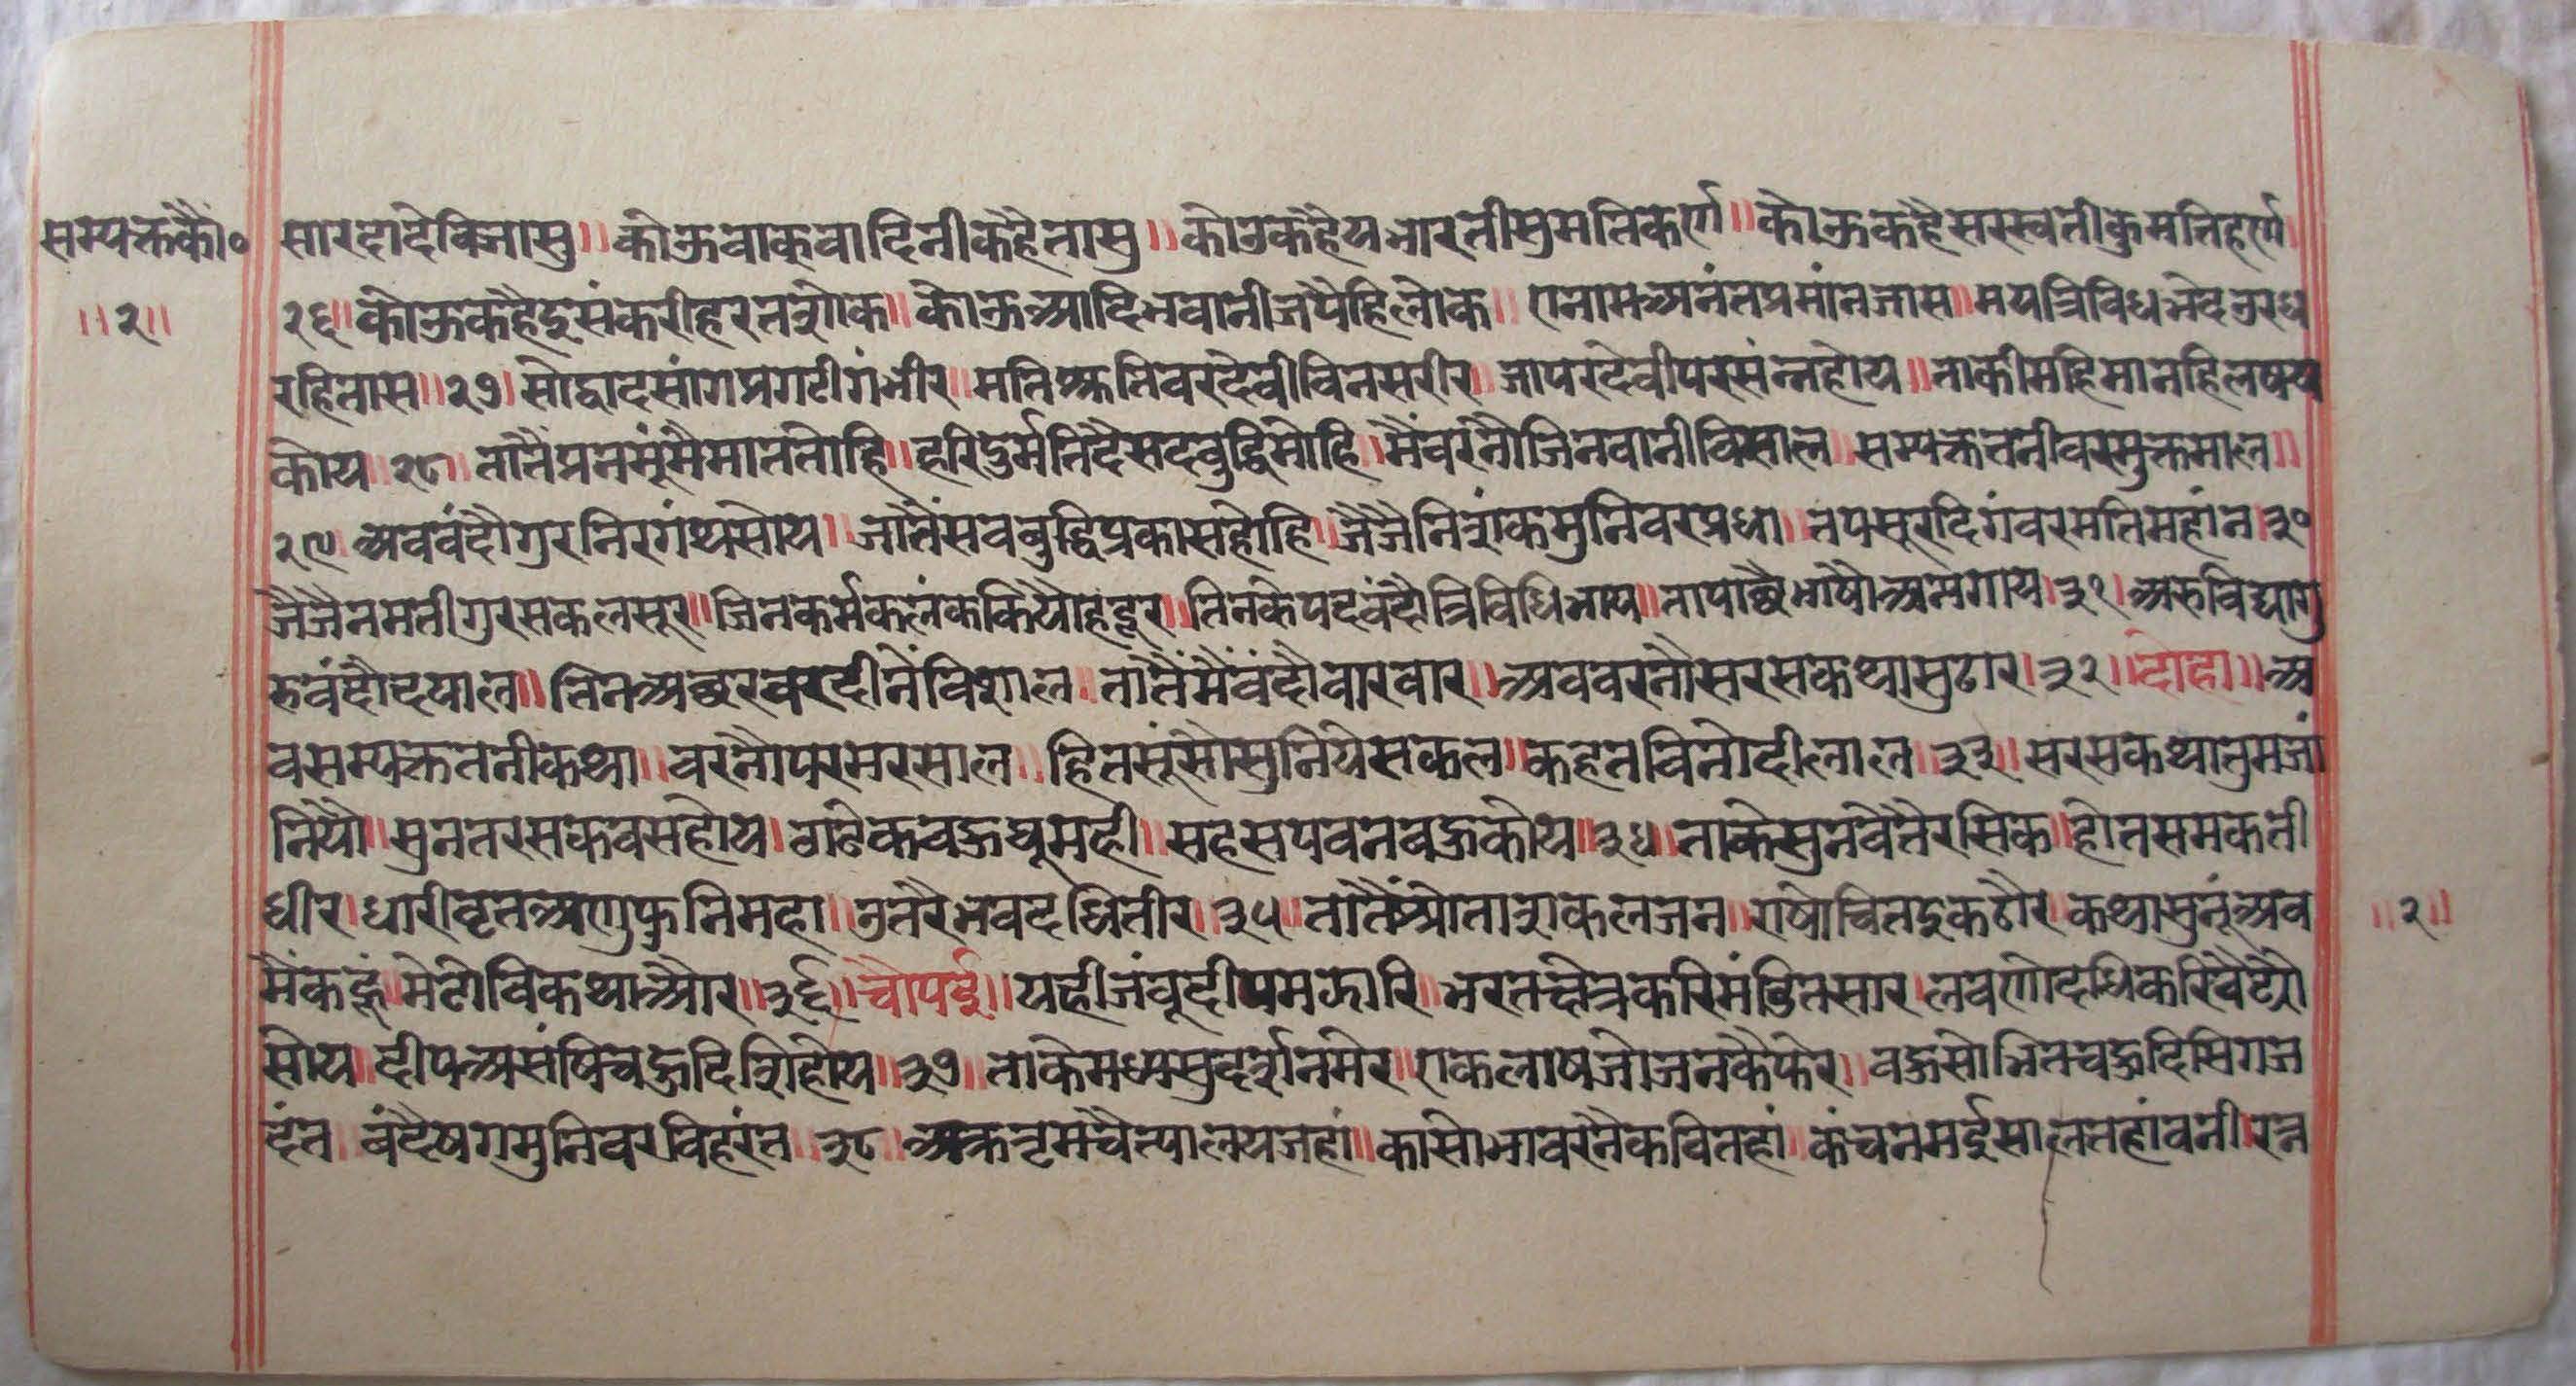 सम्यक्तकौ० सारदादेविजासु ॥ कोऊवाकवादिनीकहैतासु ॥ कोउकहैयभारतीसुमतिकर्ण ॥ कोऊकहैसरस्वतीकुमतिहर्ण
॥२॥ २६॥ कोऊकहैदुसंकरीहरतशोक ॥ कोऊआदिभवानीजपैहिलोक ॥ एनामअनंतप्रमांनजास ॥ मयत्रिविधभेदउरध
रहितास ॥ २७॥ सोद्वादसांगप्रगटीगंभीर ॥ मतिश्रुतिवरदेवीविनसरीर जापरदेवीपरसंन्नहोय ॥ ताकीमहिमानहिलषय
कोय ॥ २८॥ तातैप्रनमूंमैमाततोहि ॥ हरिदुर्मतिदैसदबुद्धिमोहि ॥ मैंवरनौजिनवानीविसाल सम्यक्ततनीवरमुक्तमाल ॥
२९ अववंदौगुरनिरगंथसोय ॥ जातैंसवबुद्धिप्रकासहोहि ॥ जैजैनिशंकमुनिवरप्रधा ॥ तपसूरदिगंवरमतिमहांन ३०
जैजैनमतीगुरसकलसूर ॥ जिनकर्मकलंककियौहैदूर ॥ तिनकेपदवंदौत्रिविधिभाय ॥ तापाछैभाषौअनगाय ३१ ॥ अरुविद्यागु
रुवंदौदयाल ॥ तिनअछरवरदीनेंविशाल तातैंमैंवंदौवारवार ॥ अववरनौसरसकथासुढार ३२ ॥ दोहा ॥ अ
वसम्यक्ततनीकथा ॥ वरनौपरमरसाल हितसूंसौसुनियेसकल ॥ कहतविनोदीलाल ॥ ३३ ॥ सरसकथातुमजां
नियौ ॥ सुनतरसकवसहोय ॥ गठेकवऊघूमही ॥ सहसपवनवऊकोय ॥ ३४ ॥ ताकेसुनवैतैरसिक ॥ होतसमकती
धीर ॥ धारीवृतअणुफुनिमहा ॥ उतरैभवदधितीर ॥ ३५ तातैंश्रोताशकलजन ॥ राषोचितइकठौर कथासुनूंअव ॥२॥
मैंकहूं ॥ मेटोविकथाऔर ॥ ३६ ॥ चौपई ॥ यहीजंवूदीपमऊारि ॥ भरतक्षेत्रकरिमंडितसार लवणोदधिकरिवैठ्यौ
सोय ॥ दीपअसंषिचहुदिशिहोय ॥ ३७ ॥ ताकेमध्यसुदर्शनमेर ॥ एकलाषजोजनकैफेर ॥ वऊसोभितचहुदिसिगज
दंत ॥ वंदैषगमुनिवरविहरंत ३८ अकृतृमचैत्यालयजहां ॥ कासोभावरनैकवितहां कंचनमईसालतहांवनी रत्न